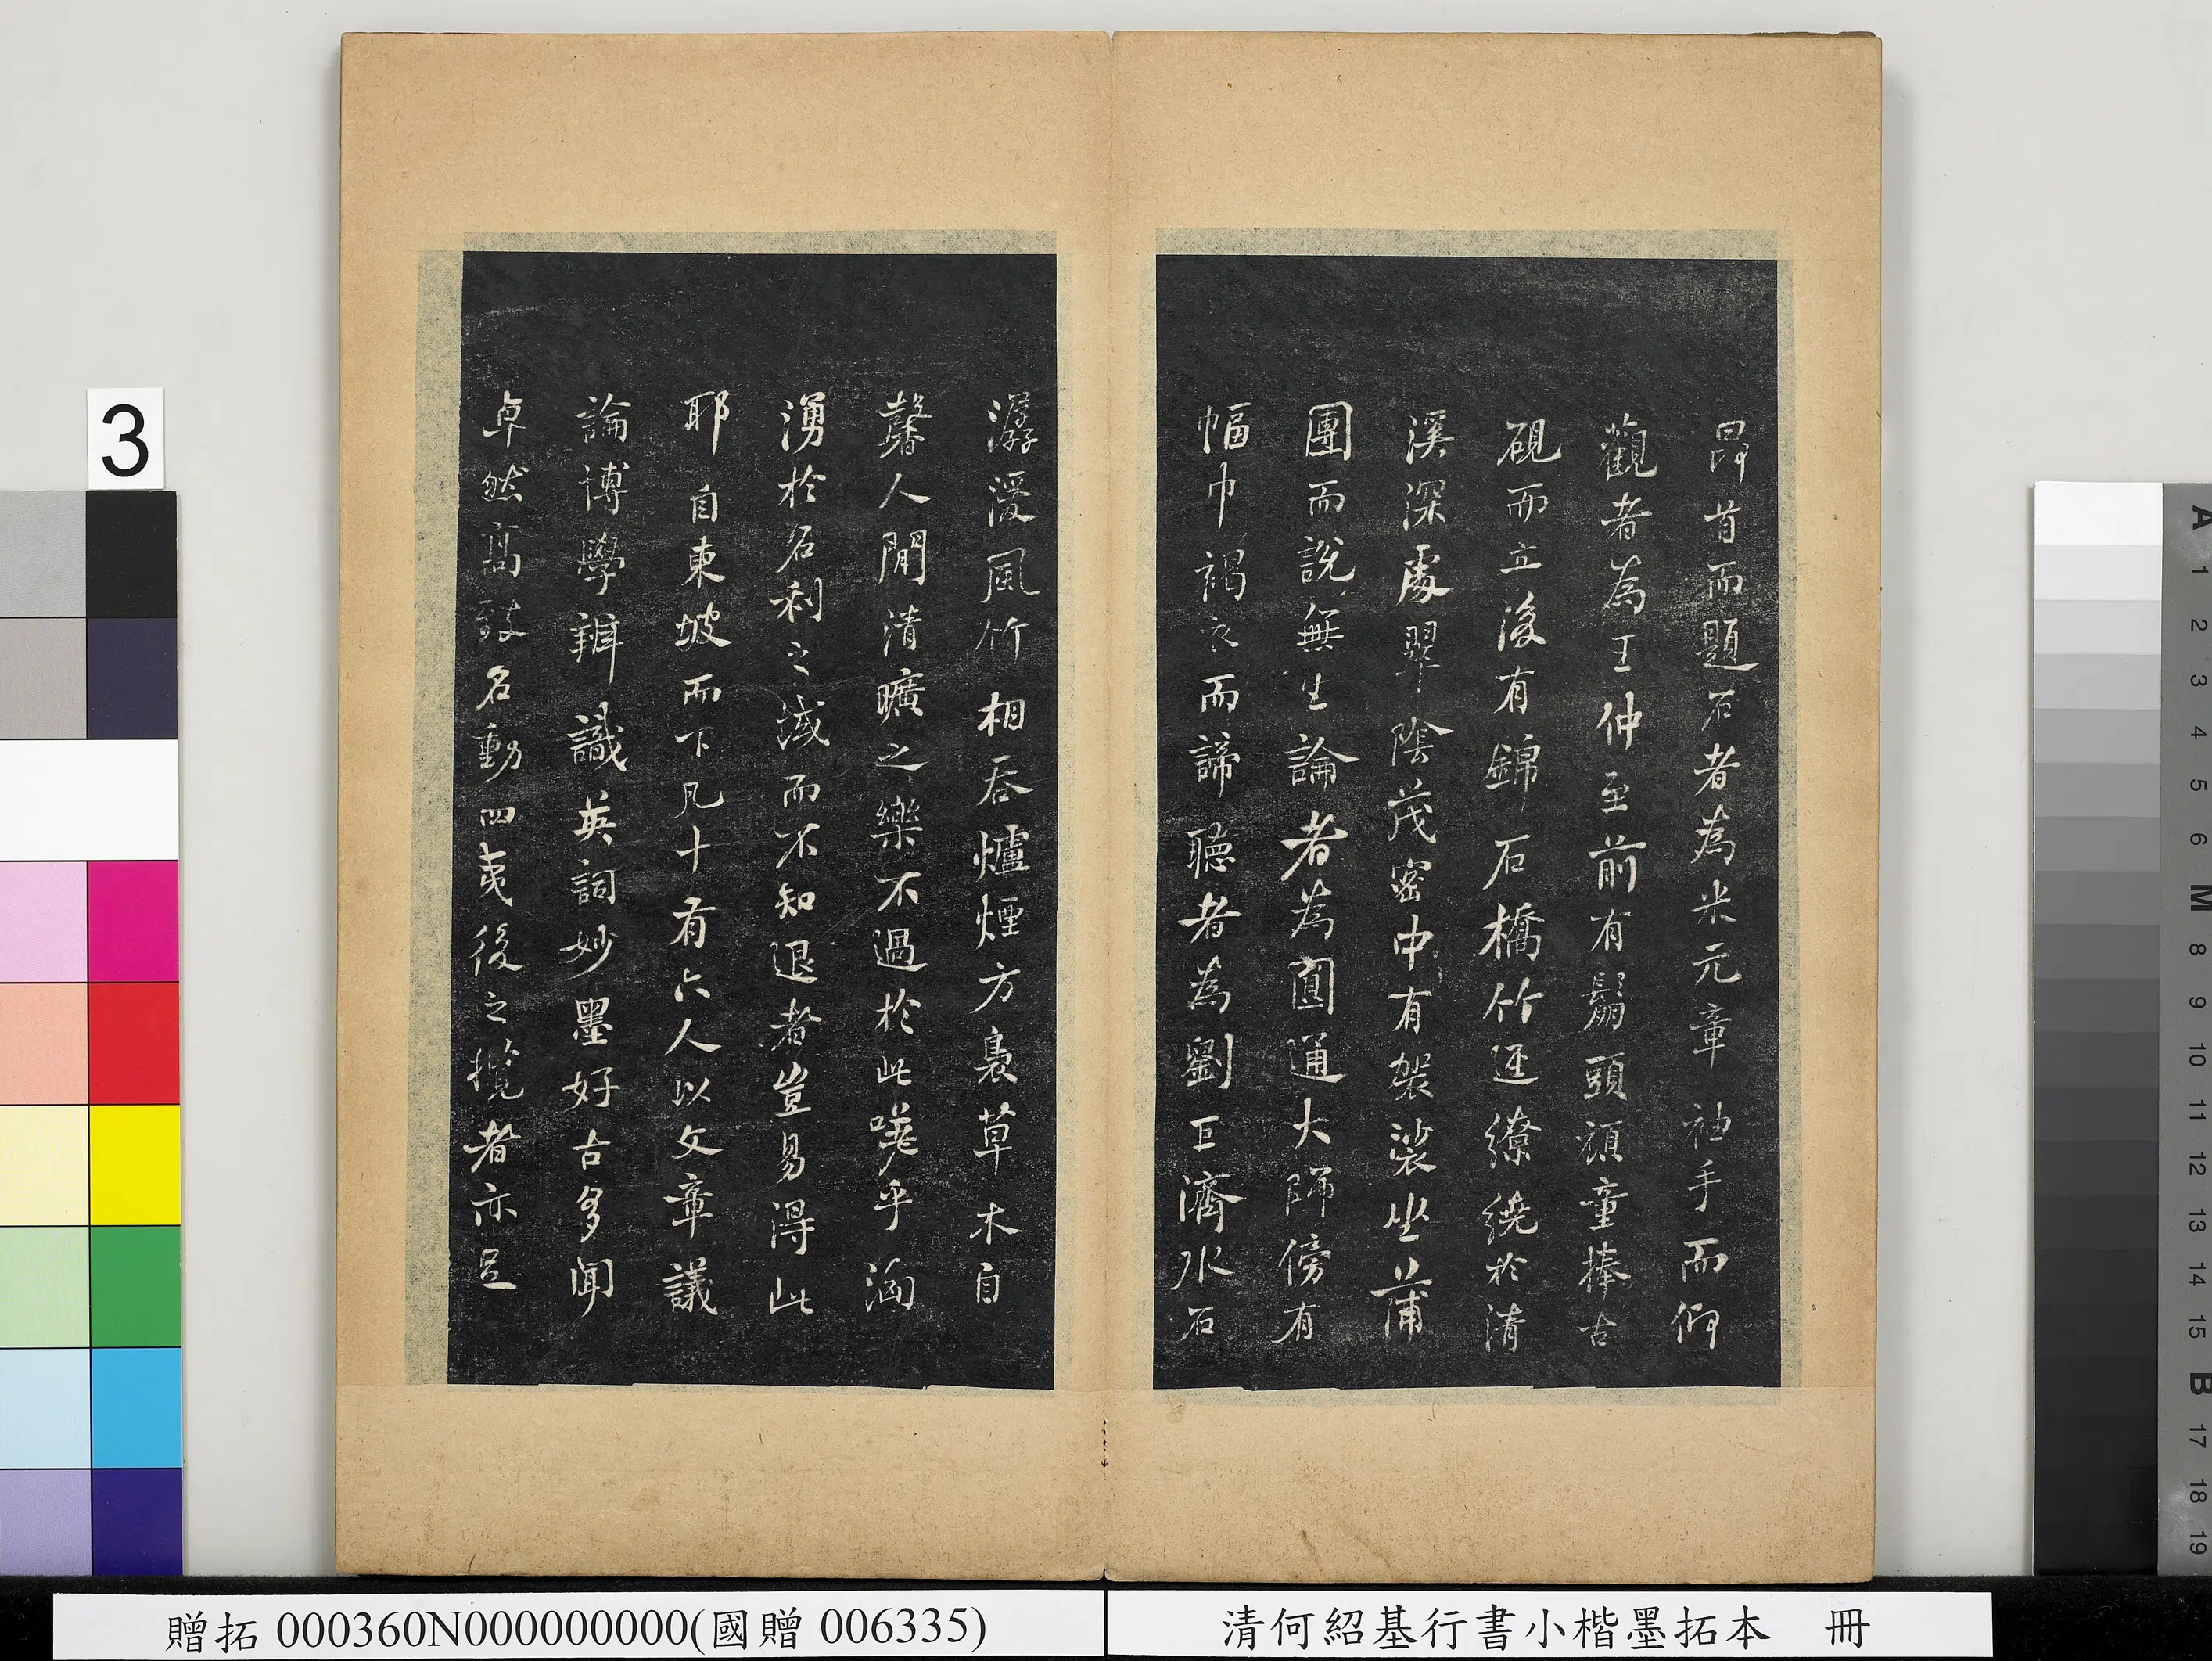 昂首而題石者為米元章袖手而仰
觀者為王仲至前有鬅頭頑童捧古
硯而立後有錦石橋竹逕繚繞於清
溪深處翠陰茂密中有袈裟坐蒲
團而說無生論者為圓通大師傍有
幅巾褐衣而諦聽者為劉巨濟水石
潺湲風竹相吞爐煙方裊草木自
馨人間清曠之樂不過於此嗟乎洶
湧於名利之域而不知退者豈易得此
耶自東坡而下凡十有六人以文章議
論博學辨識英詞妙墨好古多聞
卓然高致名動四夷後之攬者亦足
3
A
1
2
3
4
5
6
M
8
9
10
11
12
13
14
15
B
17
18
19
贈拓 000360N000000000(國贈 006335)
清何紹基行書小楷墨拓本 冊